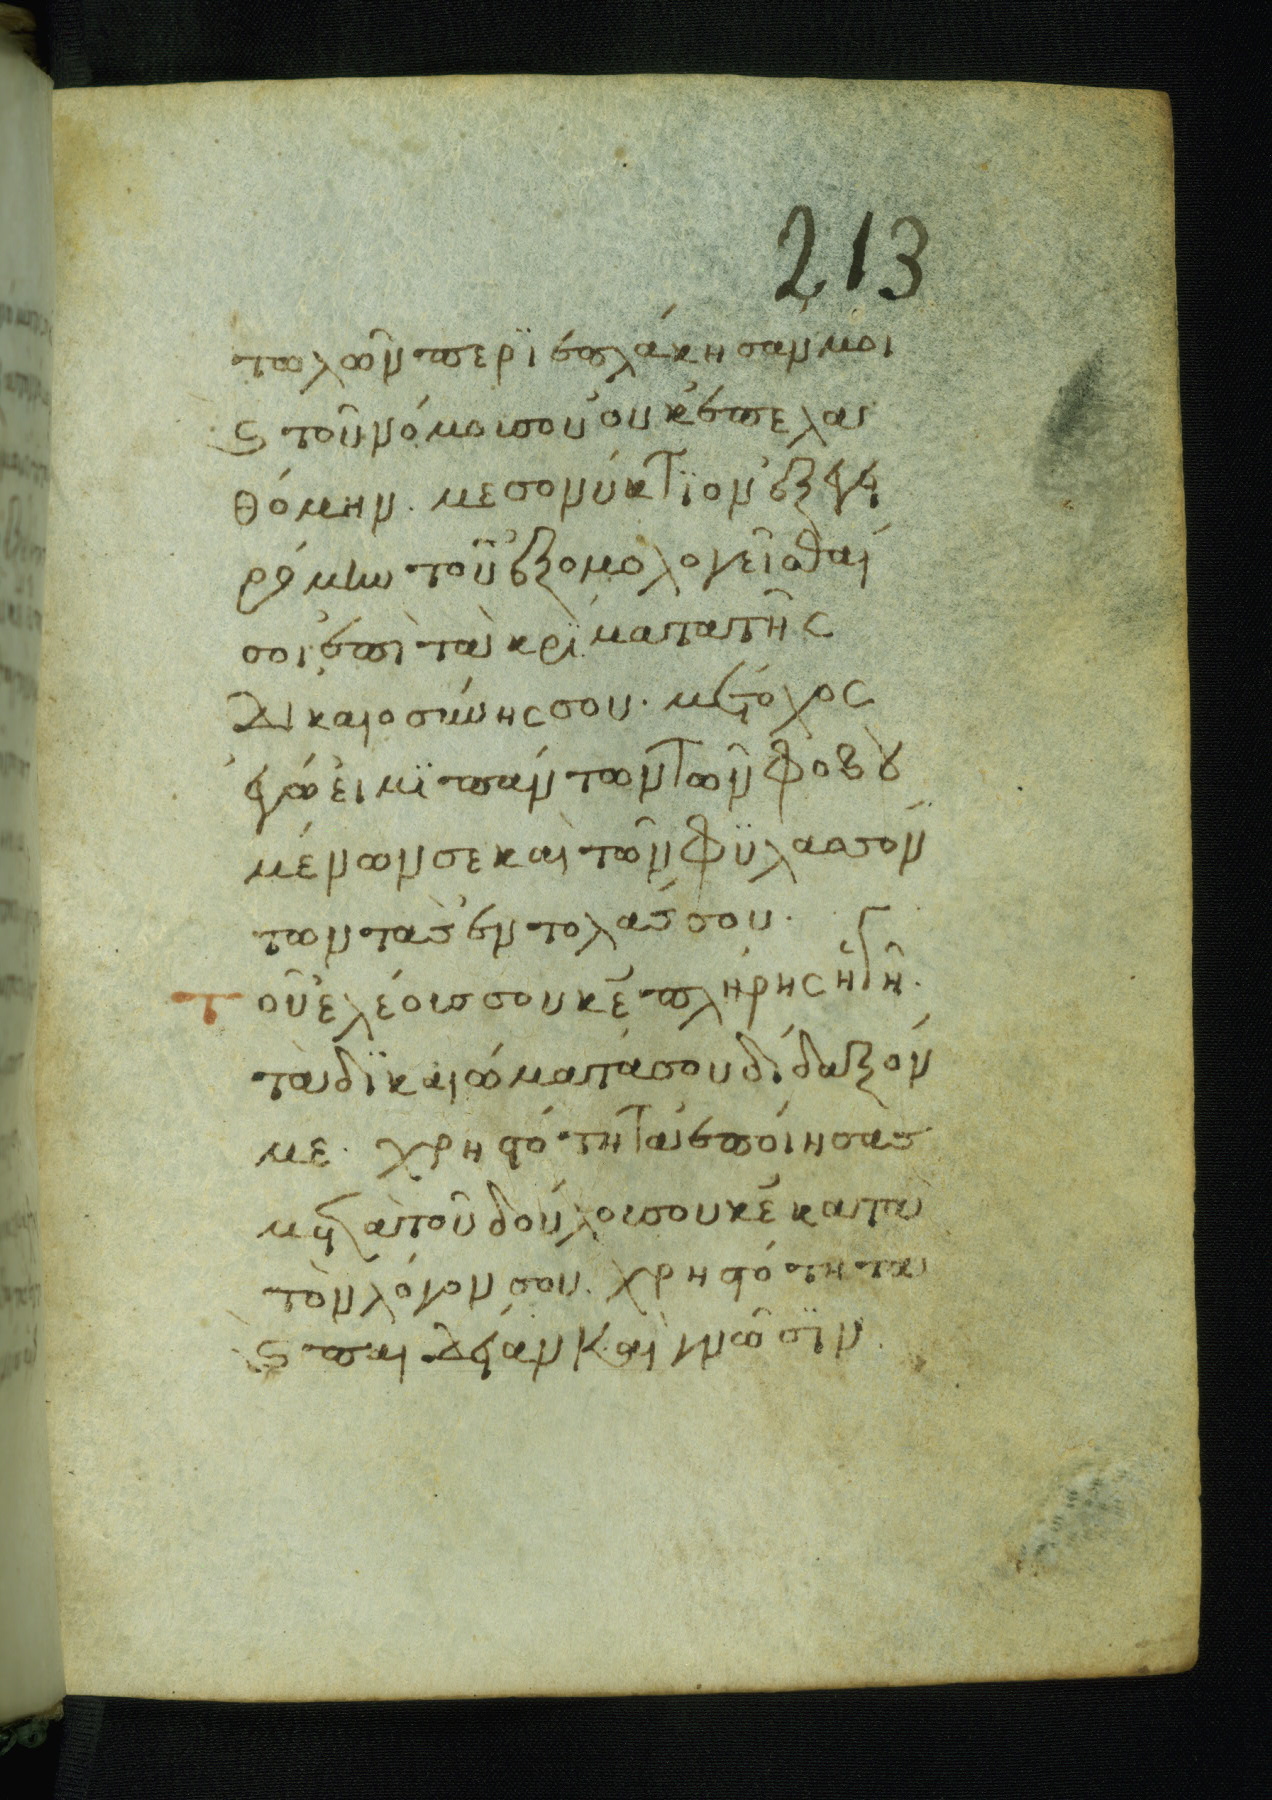 213
τωλῶν περϊεπλάκησαν μοι
ϛ τοῦ νόμου σου οὐκ ἐπελα
θόμην. μεσονύκτϊον ἐξεγει
ρόμην τοῦ ἐξομολογεῖσθαί
σοι ἐπὶ τὰ κρίματα τῆς
δικαιοσύνης σου. μέτοχος
ἐγώ εἰμϊ πάντων τῶν φοβου
μένων σε καὶ τῶν φϋλασσόν
των τὰς ἐντολάς σου.
τοῦ ἐλέους σου κε πλήρης ἡ γῆ.
τὰ δϊκαιώματά σου δίδαξόν
με. χρηστότητα ἐποίησας
μετὰ τοῦ δούλου σου κε κατὰ
τὸν λόγον σου. χρηστότητα
ϛ παιδείαν καὶ γνῶσϊν